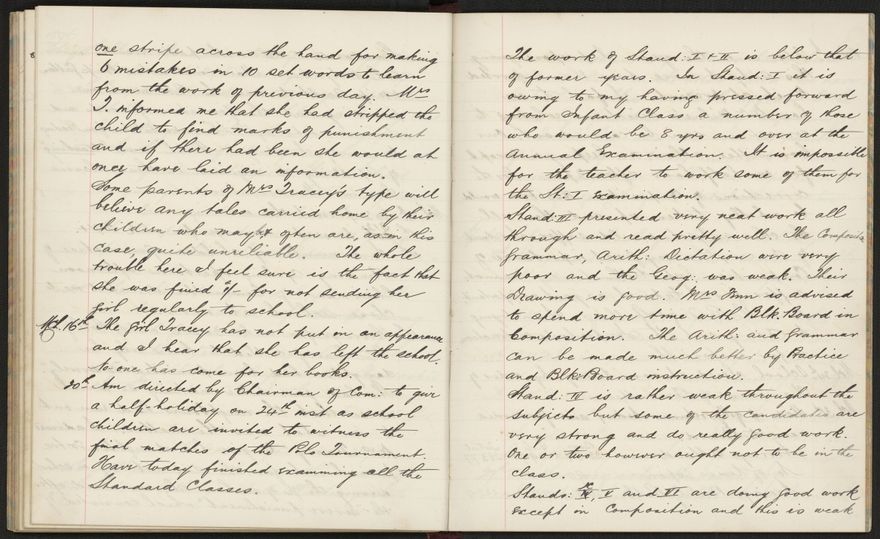 one stripe across the hand for making
6 mistakes in 10 set words to learn
from the work of previous day. Mrs
T. informed me that she had stripped the
child to find marks of punishment
and if there had been she would at
once have laid an information.
Some parents of Mrs Tracey's type will
believe any tales carried home by their
children who may & often are, as in this
case, quite unreliable. The whole
trouble here I feel sure is the fact that
she was fined for not sending her
girl regularly to school.
Mch 16th The girl Tracey has not put in an appearance
and I hear that she has left the school.
No one has come for her books.
20th Am directed by Chairman of Com: to give
a half-holiday on 24th inst as school
children are invited to witness the
final matches of the Polo Tournament.
Have today finished examining all the
Standard Classes.
The work of Stand: I & II is below that
of former years. In Stand: I it is
owing to my having pressed forward
from Infant Class a number of those
who would be 8 yrs and over at the
Annual Examination. It is impossible
for the teacher to work some of them for
the St: I examination.
Stand: III presented very neat work all
through and read pretty well. The Composition
Grammar, Arith: Dictation were very
poor and the Geog: was weak. Their
Drawing is good. Mrs is advised
to spend more time with Blk. Board in
Composition. The Arith: and Grammar
can be made much better by Practice
and Blk: Board instruction.
Stand: IV is rather weak throughout the
subjects but some of the candidates are
very strong and do really good work.
One or two however ought not to be in the
class.
Stands: V and VI are doing good work
except in Composition and this is weak